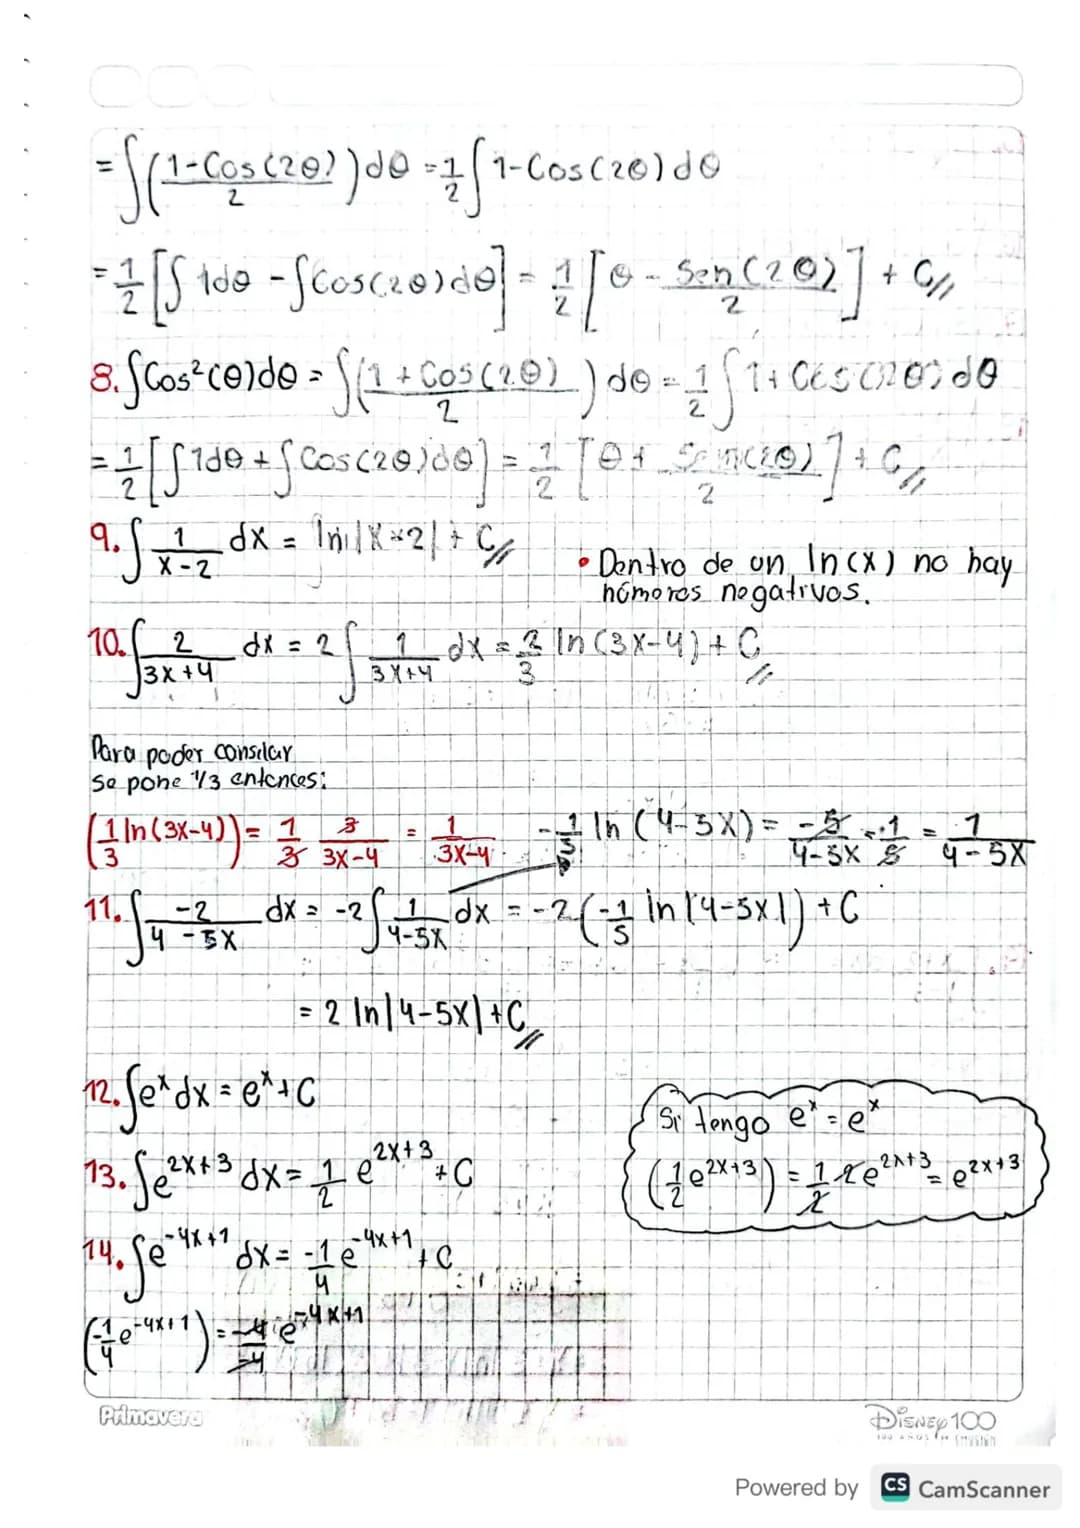 = ∫((1-Cos(2θ))/2)dθ = 1/2 ∫ 1-Cos(2θ)dθ
= 1/2 [∫ 1dθ - ∫Cos(2θ)dθ] = 1/2 [θ - Sen(2θ)/2] + C//
8. ∫Cos²(θ)dθ = ∫((1 + Cos(2θ))/2) dθ = 1/2 ∫ 1+ Cos(2θ)dθ
= 1/2 [∫1dθ + ∫Cos(2θ)dθ] = 1/2 [θ + Sen(2θ)/2] + C//
9. ∫ 1/(x-2) dx = ln|x-2| + C//
• Dentro de un ln(x) no hay
números negativos.
10. ∫ 2/(3x+4) dx = 2 ∫ 1/(3x+4) dx = 2/3 ln(3x-4) + C//
Para poder conselar
se pone 1/3 entonces:
(1/3 ln(3x-4)) = 1/3 3/(3x-4) = 1/(3x-4)
-1/5 ln(4-5x) = -5/(4-5x) · -1/5 = 1/(4-5x)
11. ∫ -2/(4-5x) dx = -2∫ 1/(4-5x) dx = -2(-1/5 ln|4-5x|) + C
= 2 ln|4-5x|+C//
12. ∫e^x dx = e^x + C
Si tengo e^x = e^x
(1/2 e^(2x+3)) = 1/2 2e^(2x+3) = e^(2x+3)
13. ∫e^(2x+3) dx = 1/2 e^(2x+3) + C
14. ∫e^(-4x+1) dx = -1/4 e^(-4x+1) + C
(-1/4 e^(-4x+1)) = -4/-4 e^(-4x+1)
Primavera
Disney 100
Powered by CS CamScanner